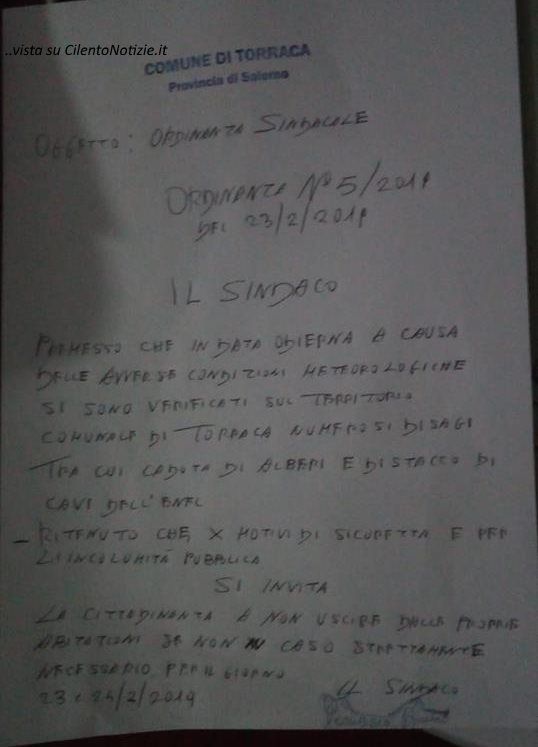 ..vista su CilentoNotizie.it
COMUNE DI TORRACA
Provincia di Salerno
OGGETTO: ORDINANZA SINDACALE
ORDINANZA N° 5/2019
DEL 23/2/2019
IL SINDACO
PREMESSO CHE IN DATA ODIERNA A CAUSA
DELLE AVVERSE CONDIZIONI METEOROLOGICHE
SI SONO VERIFICATI SUL TERRITORIO
COMUNALE DI TORRACA NUMEROSI DISAGI
TRA CUI CADUTA DI ALBERI E DISTACCO DI
CAVI DELL'ENEL
- RITENUTO CHE X MOTIVI DI SICUREZZA E PER
L'INCOLUMITÀ PUBBLICA
SI INVITA
LA CITTADINANZA A NON USCIRE DALLE PROPRIE
ABITAZIONI SE NON IN CASO STRETTAMENTE
NECESSARIO PER IL GIORNO
23 e 24/2/2019
IL SINDACO